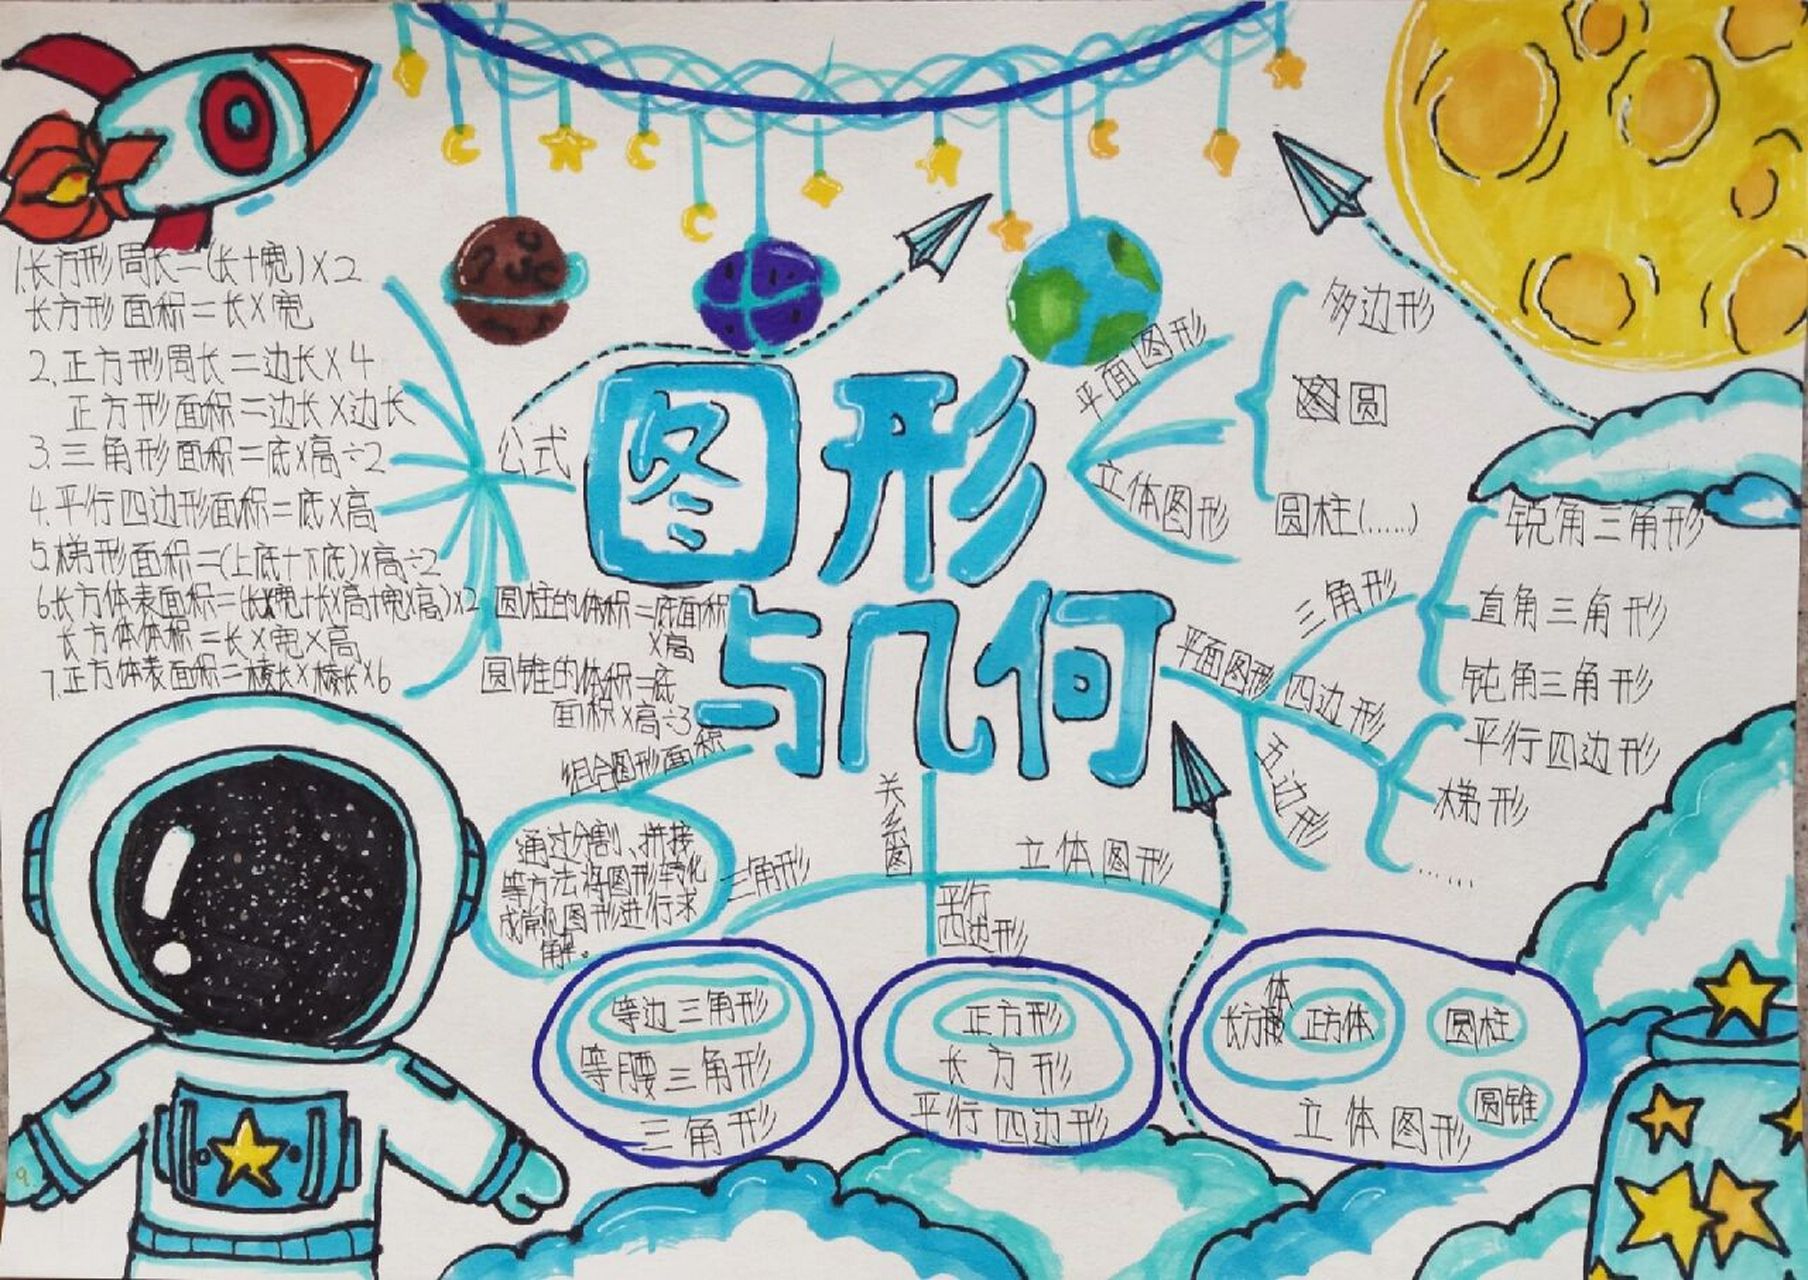 图形
与几何
公式
1.长方形周长=(长+宽)×2
长方形面积=长×宽
2.正方形周长=边长×4
正方形面积=边长×边长
3.三角形面积=底×高÷2
4.平行四边形面积=底×高
5.梯形面积=(上底+下底)×高÷2
6.长方体表面积=(长×宽+长×高+宽×高)×2
长方体体积=长×宽×高
7.正方体表面积=棱长×棱长×6
圆柱的体积=底面积
×高
圆锥的体积=底
面积×高÷3
组合图形面积
通过分割、拼接
等方法将图形转化
成常见图形进行求
解。
平面图形
立体图形
多边形
圆
圆柱(......)
平面图形
三角形
锐角三角形
直角三角形
钝角三角形
四边形
平行四边形
梯形
......
五边形
关系图
三角形
平行
四边形
立体图形
等边三角形
等腰三角形
三角形
正方形
长方形
平行四边形
长方体
正方体
圆柱
圆锥
立体图形
9